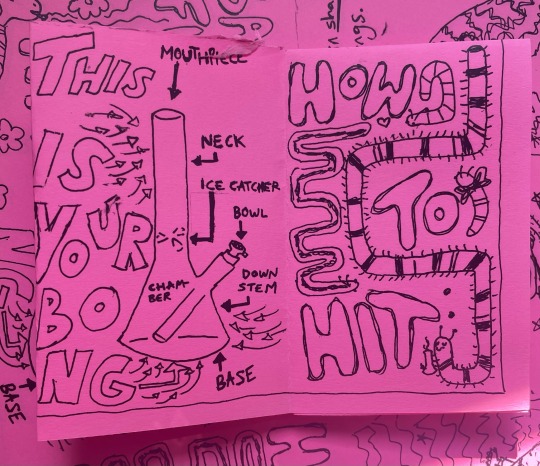 THIS
IS
YOUR
BO
NG
MOUTHPIECE
NECK
ICE CATCHER
BOWL
CHAM-
BER
DOWN
STEM
BASE
HOW
TO
HIT
BASE